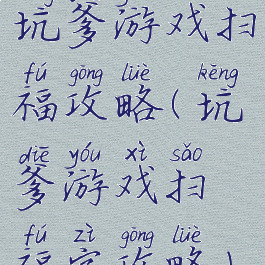 坑爹游戏扫
fú gōng lüè kēng
福攻略(坑
diē yóu xì sǎo
爹游戏扫
fú zì gōng lüè
福字攻略)